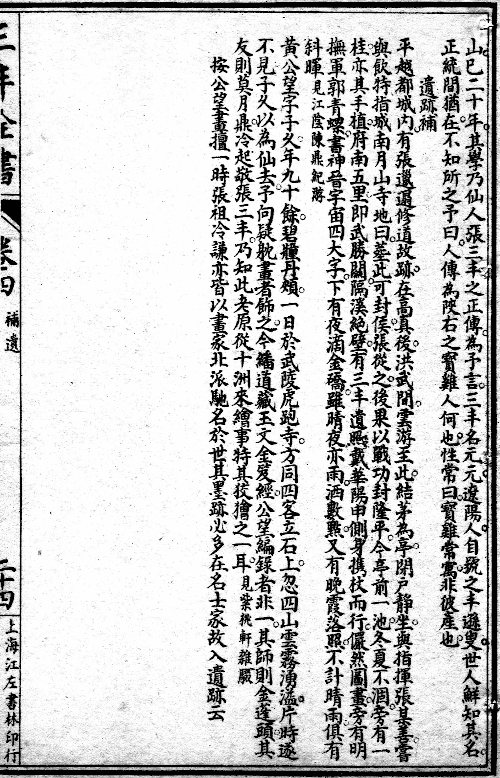 山已二十年其學乃仙人張三丰之正傳為予言三丰名元元遼陽人自號之丰遜叟世人鮮知其名
正統間猶在不知所之予曰人傳為陝右之寶雞人何也性常曰寶雞常寓非彼產也
遺跡補
平越都城內有張邋遢修道故跡在高真後洪武間雲游至此結茅為亭閉戶靜坐與指揮張某善嘗
與飲特指城南月山寺地曰葬此可封侯張從之後果以戰功封隆平今亭前一池冬夏不涸旁有一
桂亦其手植府南五里即武勝關隔溪絕壁有三丰遺照戴華陽巾側身攜杖而行儼然圖畫旁有明
撫軍郭青螺書神晉字宙四大字下有夜滴金橋雖晴夜亦雨洒數點又有晚霞落照不計晴雨俱有
斜暉見江陰陳鼎紀跡
黃公望字子久年九十餘碧瞳丹頰一日於武陵虎跑寺方同四客立石上忽四山雲霧湧溢片時遂
不見子久以為仙去予向疑耽畫者飾之今繙道藏玉文金笈經公望編錄者非一其師則金蓬頭其
友則莫月鼎冷起敬張三丰乃知此老原從十洲來繪事特其狡獪之一耳見紫桃軒雜綴
按公望畫擅一時張祖冷謙亦皆以畫家北派馳名於世其墨跡必多在名士家故入遺跡云
三丰全書
卷四
補遺
二十四
上海江左書林印行